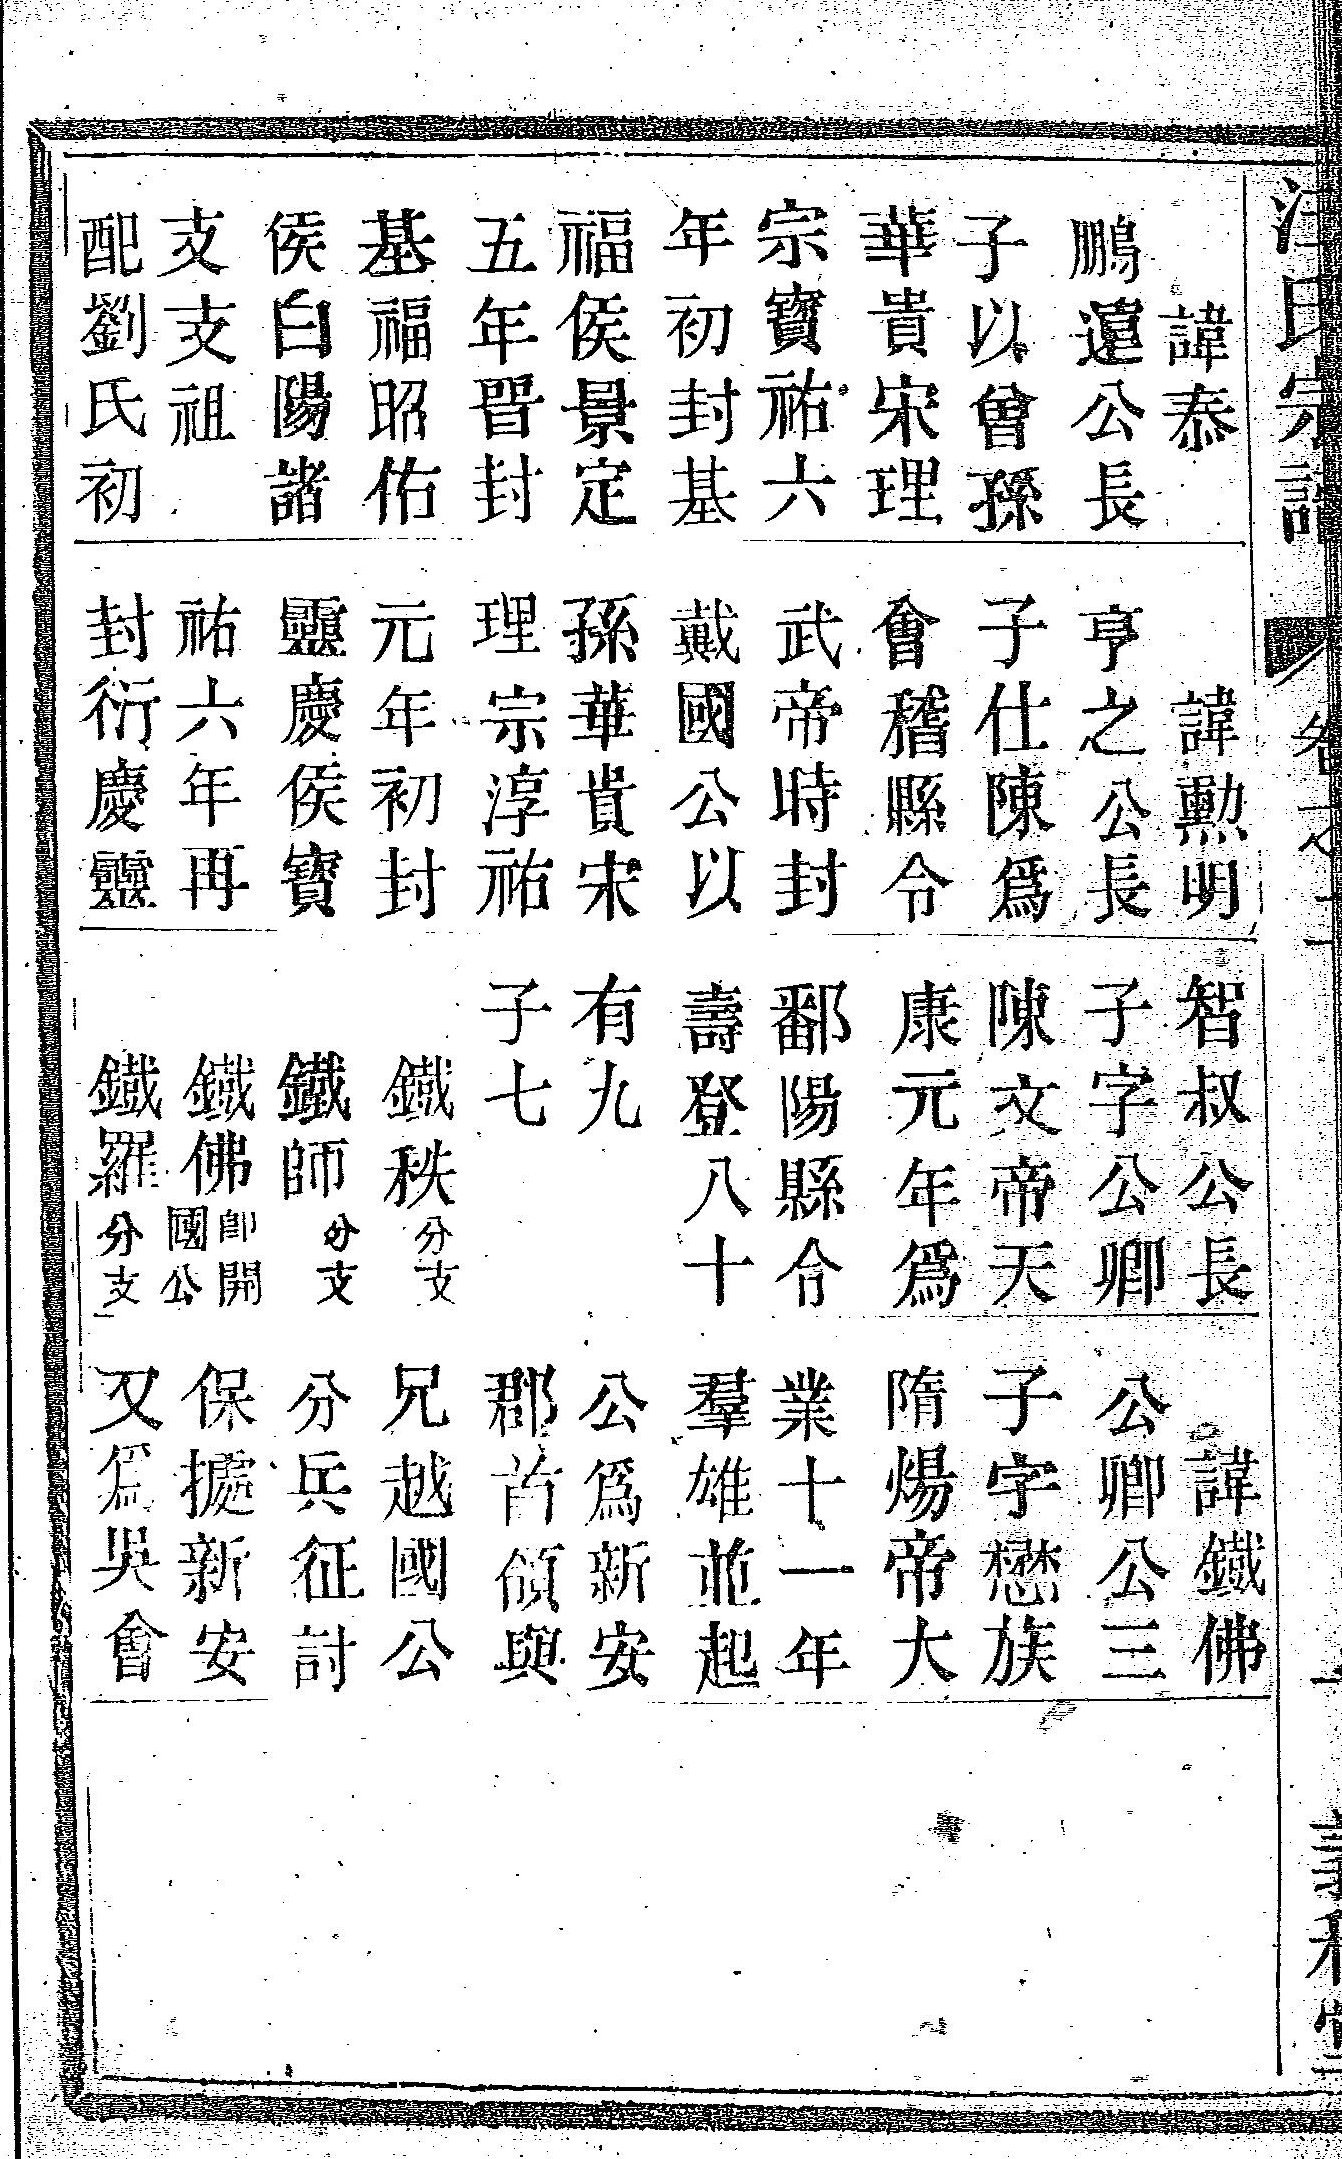 汪氏宗譜
卷之
諱泰
鵬遠公長
子以曾孫
華貴宋理
宗寶祐六
年初封基
福侯景定
五年晋封
基福昭佑
侯白陽諸
支支祖
配劉氏初
諱勲明
亨之公長
子仕陳爲
會稽縣令
武帝時封
戴國公以
孫華貴宋
理宗淳祐
元年初封
靈慶侯寶
祐六年再
封衍慶靈
智叔公長
子字公卿
陳文帝天
康元年爲
鄱陽縣令
壽登八十
有九
子七
鐵秩分支
鐵師分支
鐵佛即開國公
鐵羅分支
諱鐵佛
公卿公三
子字懋族
隋煬帝大
業十一年
羣雄並起
公爲新安
郡首領與
兄越國公
分兵征討
保據新安
又爲吳會